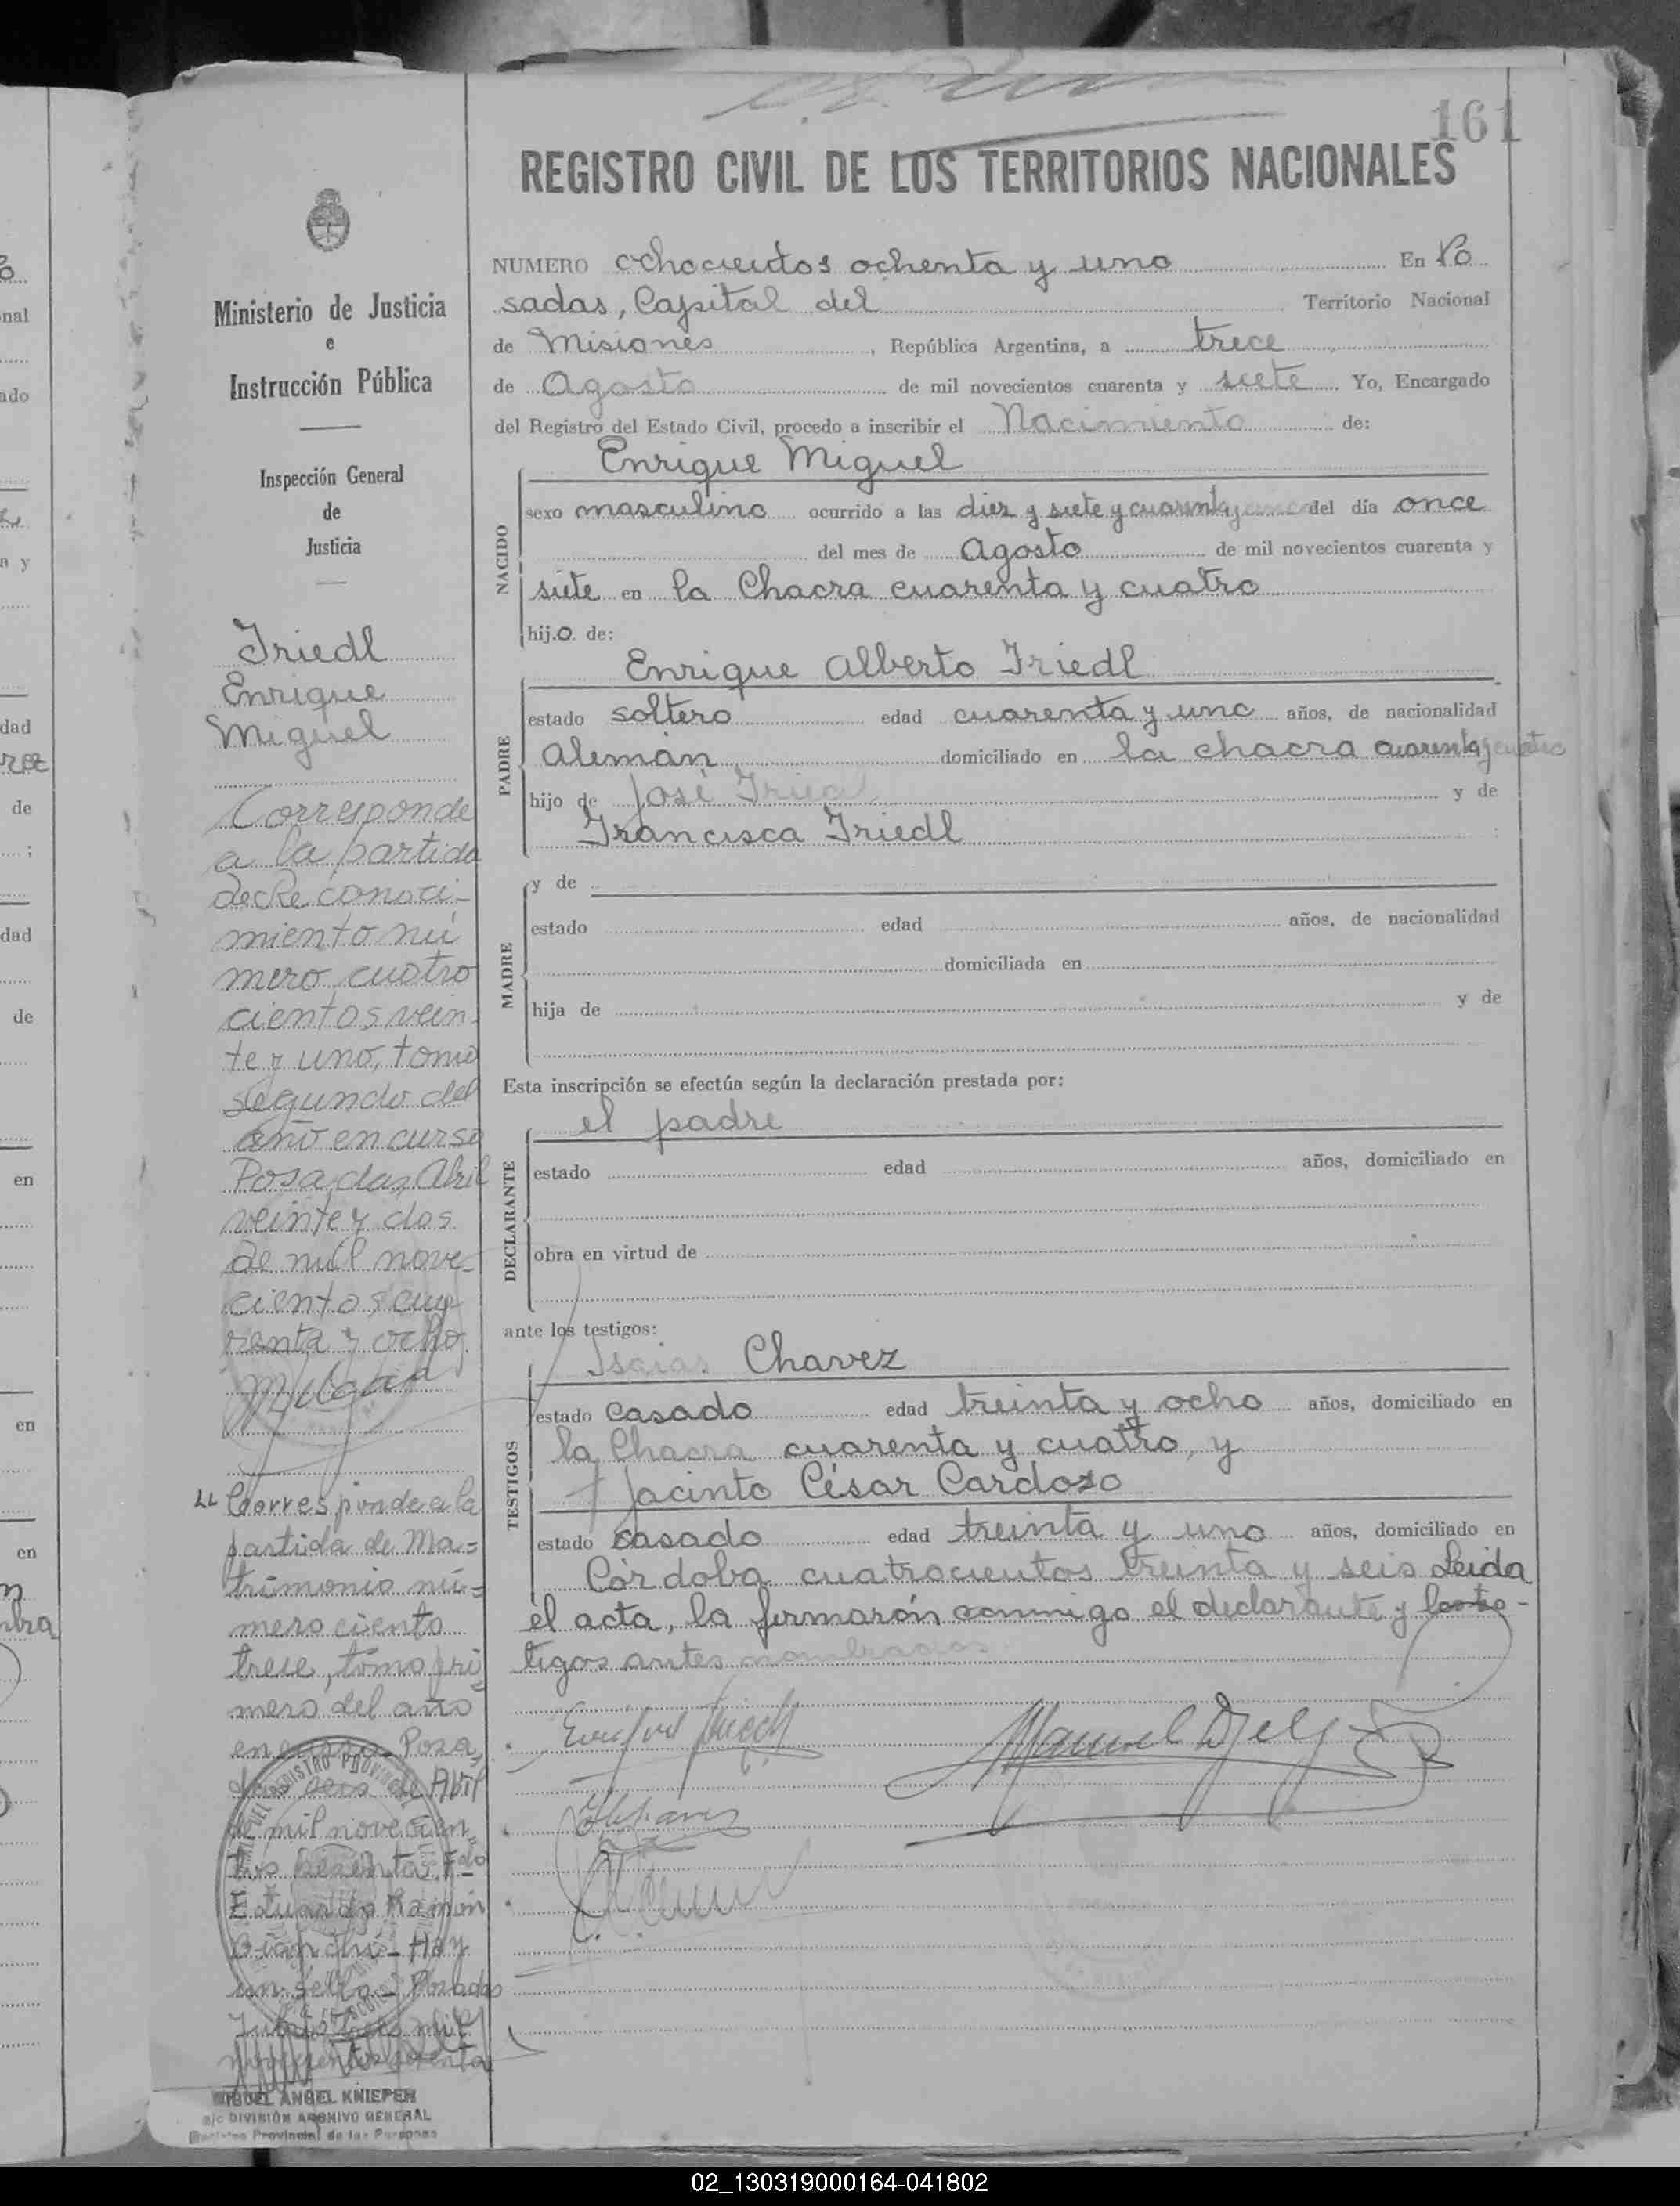 161
REGISTRO CIVIL DE LOS TERRITORIOS NACIONALES
NUMERO ochocientos ochenta y uno En Po
sadas, Capital del Territorio Nacional
de Misiones, República Argentina, a trece
de Agosto de mil novecientos cuarenta y siete Yo, Encargado
del Registro del Estado Civil, procedo a inscribir el Nacimiento de:
Enrique Miguel
NACIDO
sexo masculino ocurrido a las diez y siete y cuarenta y cinco del día once
del mes de Agosto de mil novecientos cuarenta y
siete en la Chacra cuarenta y cuatro
hijo de:
Enrique Alberto Friedl
PADRE
estado soltero edad cuarenta y uno años, de nacionalidad
Alemán domiciliado en la chacra cuarenta y cuatro
hijo de José Friedl y de
Francisca Friedl
MADRE
y de
estado edad años, de nacionalidad
domiciliada en
hija de y de
Esta inscripción se efectúa según la declaración prestada por:
el padre
DECLARANTE
estado edad años, domiciliado en
obra en virtud de
ante los testigos:
Isaias Chavez
TESTIGOS
estado casado edad treinta y ocho años, domiciliado en
la Chacra cuarenta y cuatro, y
Jacinto César Cardozo
estado casado edad treinta y uno años, domiciliado en
Córdoba cuatrocientos treinta y seis Leida
el acta, la firmarón conmigo el declarante y los tes-
tigos antes nombrados
Ministerio de Justicia
e
Instrucción Pública
Inspección General
de
Justicia
Friedl
Enrique
Miguel
Corresponde
a la partida
de Reconoci-
miento nú
mero cuatro
cientos vein
te y uno, tomo
segundo del
año en curso
Posadas, Abril
veinte y dos
de mil nove-
cientos cua
renta y ocho
Corresponde a la
partida de Ma=
trimonio nú=
mero ciento
trece, tomo pri
mero del año
en curso Posa,
das seis de Abril
de mil novecien
tos sesenta. Fdo
Eduardo Ramón
Bianchi - Hay
un sello - Posadas
mil
novecientos sesenta
MIGUEL ANGEL KNIEPEN
a/c DIVISIÓN ARCHIVO GENERAL
Registro Provincial de las Personas
02_130319000164-041802